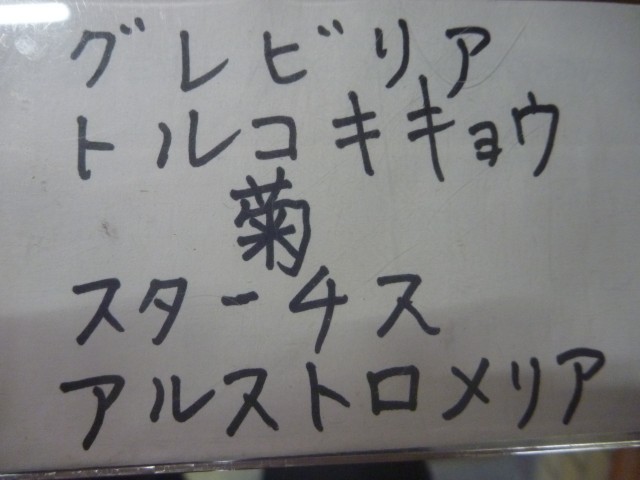 グレビリア
トルコキキョウ
菊
スターチス
アルストロメリア